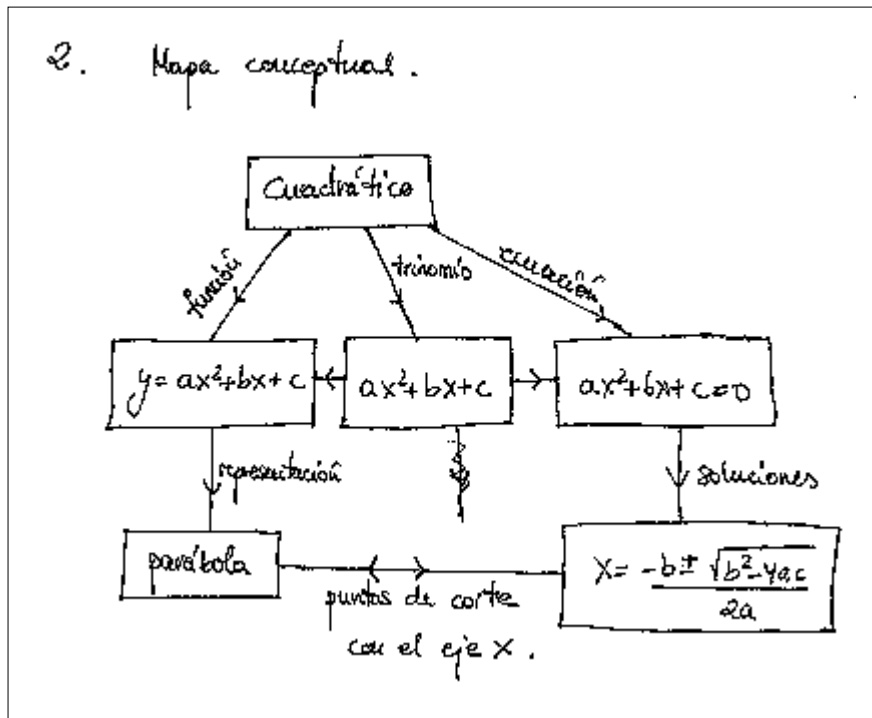 2. Mapa conceptual.
Cuadrático
función
trinomio
ecuación
y = ax²+bx+c
ax²+bx+c
ax²+bx+c=0
representación
soluciones
parábola
puntos de corte
con el eje X.
X = -b ± √b²-4ac
2a